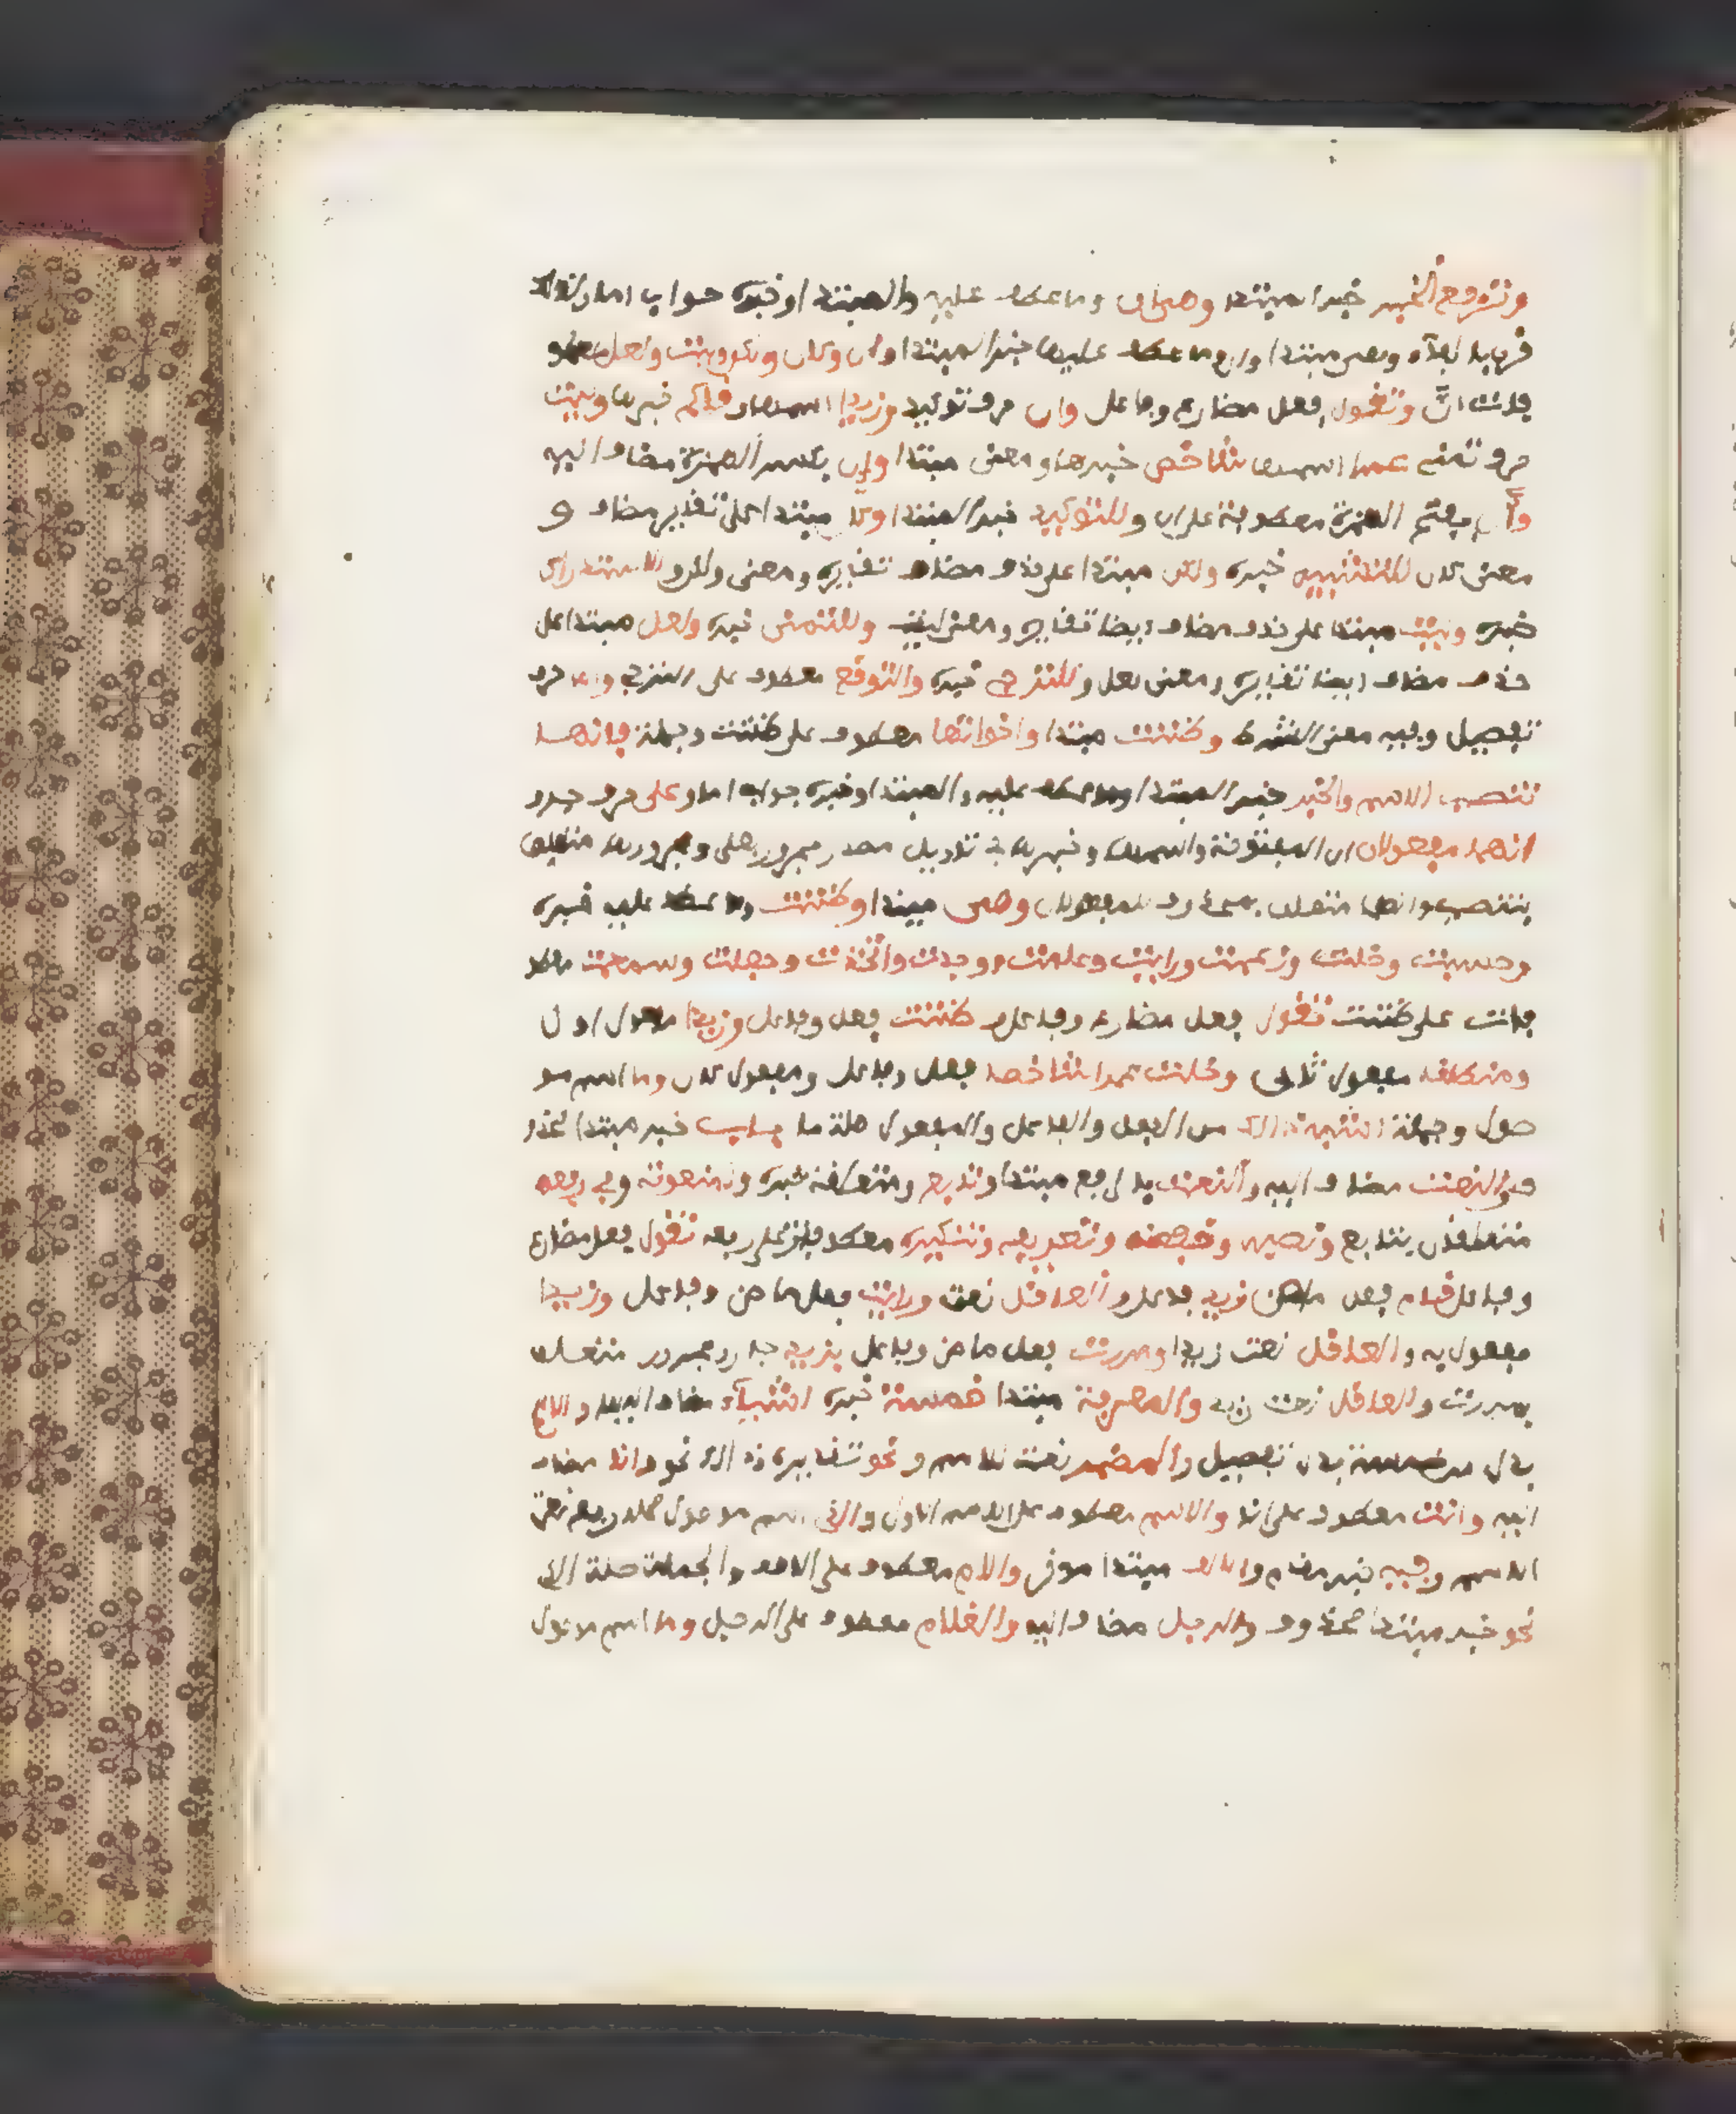 وترفع الخبر خبر المبتدا وهي ان وما عطف عليه والمبتدا وخبره جواب اما ولذلك
قرن بالفاء وهي مبتدا وان وما عطف عليها خبر المبتدا وان وكان ولكن وليت ولعل معطو
فات ان وتقول فعل مضارع وفاعل وان حرف توكيد وزيدا اسمها وقائم خبرها وليت
حرف تمنى عمرا اسمها شاخص خبرها ومعنى مبتدا وان بكسر الهمزة مضاف اليه
وأن بفتح الهمزة معطوفة على ان وللتوكيد خبر المبتدا وكان مبتدا على تقدير مضاف و
معنى كان للتشبيه خبره ولكن مبتدا على حذف مضاف تقديره ومعنى ولكن وللاستدراك
خبره وليت مبتدا على حذف مضاف ايضا تقديره ومعنى ليت وللتمنى خبره ولعل مبتدا على
حذف مضاف ايضا تقديره ومعنى لعل وللترجي خبره والتوقع معطوف على الترجي واما حرف
تفصيل وفيه معنى الشرط وظننت مبتدا واخواتها معطوف على ظننت وجملة فانها
تنصب الاسم والخبر خبر المبتدا وما عطف عليه والمبتدا وخبره جواب اما وعلى حرف جر و
انهما مفعولان ان المفتوحة واسمها وخبرها في تاويل مصدر مجرور بعلى ومجرورها متعلق
بتنصب ولها متعلق بمحذوف مفعولان وهي مبتدا وظننت وما عطف عليه خبره
وحسبت وخلت وزعمت ورايت وعلمت ووجدت واتخذت وجعلت وسمعت معطو
فات على ظننت تقول فعل مضارع وفاعل وظننت فعل وفاعل وزيدا مفعول اول
ومنطلقا مفعول ثاني وخلت عمرا شاخصا فعل وفاعل ومفعول ثان وما اسم مو
صول وجملة اشبه ذلك من الفعل والفاعل والمفعول صلة ما باب خبر مبتدا محذو
ف والنعت مضاف اليه والنعت بدل مع مبتدا وتابع ومتعلقه خبره والمنعوت وفي رفعه
متعلقان بتابع ونصبه وخفضه وتعريفه وتنكيره معطوفات على رفعه تقول فعل مضارع
وفاعل قام فعل ماض زيد فاعل والعاقل نعت ورايت فعل ماض وفاعل وزيدا
مفعول به والعاقل نعت زيدا ومررت فعل ماض وفاعل بزيد جار ومجرور متعلق
بمررت والعاقل نعت زيد والمعرفة مبتدا خمسة خبره اشياء مضاف اليه والاسم
بدل من خمسة بدل تفصيل والمضمر نعت للاسم ونحو تقديره ذلك نحو وانا مضاف
اليه وانت معطوف على انا والاسم معطوف على الاسم الاول والذي اسم موصول محله رفع نعت
الاسم وفيه خبر مقدم والالف مبتدا موخر واللام معطوف على الالف والجملة صلة الذي
نحو خبر مبتدا محذوف والرجل مضاف اليه والغلام معطوف على الرجل وما اسم موصول